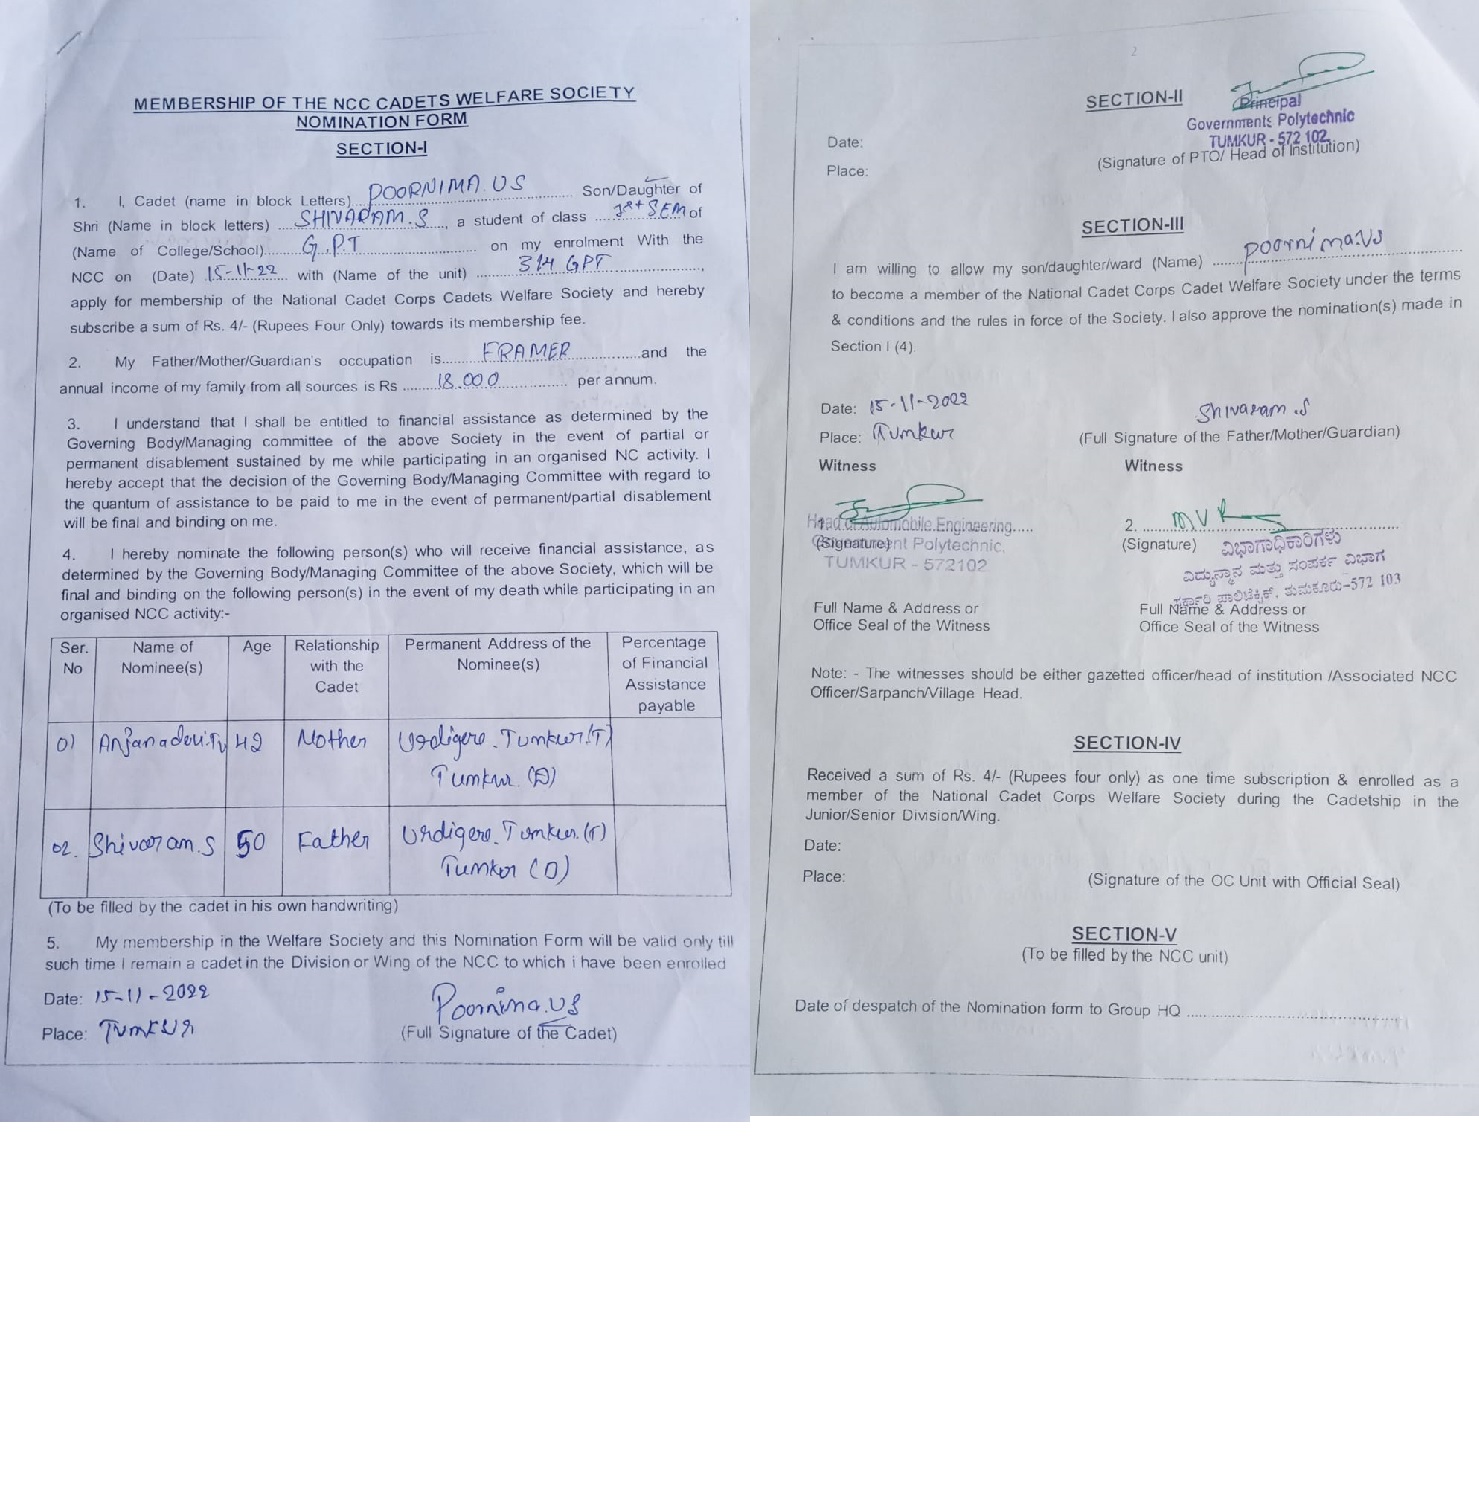 MEMBERSHIP OF THE NCC CADETS WELFARE SOCIETY
NOMINATION FORM
SECTION-I
1. I, Cadet (name in block Letters) POORNIMA.US Son/Daughter of
Shri (Name in block letters) SHIVARAM.S, a student of class 1st SEM of
(Name of College/School) G.P.T on my enrolment With the
NCC on (Date) 15-11-22 with (Name of the unit) GPT,
apply for membership of the National Cadet Corps Cadets Welfare Society and hereby
subscribe a sum of Rs. 4/- (Rupees Four Only) towards its membership fee.
2. My Father/Mother/Guardian's occupation is FRAMER and the
annual income of my family from all sources is Rs 18.000 per annum.
3. I understand that I shall be entitled to financial assistance as determined by the
Governing Body/Managing committee of the above Society in the event of partial or
permanent disablement sustained by me while participating in an organised NC activity. I
hereby accept that the decision of the Governing Body/Managing Committee with regard to
the quantum of assistance to be paid to me in the event of permanent/partial disablement
will be final and binding on me.
4. I hereby nominate the following person(s) who will receive financial assistance, as
determined by the Governing Body/Managing Committee of the above Society, which will be
final and binding on the following person(s) in the event of my death while participating in an
organised NCC activity:-
Ser. No Name of Nominee(s) Age Relationship with the Cadet Permanent Address of the Nominee(s) Percentage of Financial Assistance payable
01 42 Mother Urdigere. Tumkur.(T)
Tumkur (D)
02. Shivaram.S 50 Father Urdigere. Tumkur.(T)
Tumkur (D)
(To be filled by the cadet in his own handwriting)
5. My membership in the Welfare Society and this Nomination Form will be valid only till
such time I remain a cadet in the Division or Wing of the NCC to which i have been enrolled
Date: 15-11-2022 Poornima.US
Place: TUMKUR (Full Signature of the Cadet)
2
SECTION-II
Principal
Governments Polytechnic
TUMKUR - 572 102.
Date:
(Signature of PTO/ Head of Institution)
Place:
SECTION-III
I am willing to allow my son/daughter/ward (Name) poornima.us
to become a member of the National Cadet Corps Cadet Welfare Society under the terms
& conditions and the rules in force of the Society. I also approve the nomination(s) made in
Section I (4).
Date: 15-11-2022 Shivaram.S
Place: Tumkur (Full Signature of the Father/Mother/Guardian)
Witness Witness
Head of Automobile Engineering
(Signature) Polytechnic,
TUMKUR - 572102
2. MVK
(Signature) ವಿಭಾಗಾಧಿಕಾರಿಗಳು
ವಿದ್ಯುನ್ಮಾನ ಮತ್ತು ಸಂಪರ್ಕ ವಿಭಾಗ
ಸರ್ಕಾರಿ ಪಾಲಿಟೆಕ್ನಿಕ್, ತುಮಕೂರು-572 103
Full Name & Address or Full Name & Address or
Office Seal of the Witness Office Seal of the Witness
Note: - The witnesses should be either gazetted officer/head of institution /Associated NCC
Officer/Sarpanch/Village Head.
SECTION-IV
Received a sum of Rs. 4/- (Rupees four only) as one time subscription & enrolled as a
member of the National Cadet Corps Welfare Society during the Cadetship in the
Junior/Senior Division/Wing.
Date:
Place: (Signature of the OC Unit with Official Seal)
SECTION-V
(To be filled by the NCC unit)
Date of despatch of the Nomination form to Group HQ